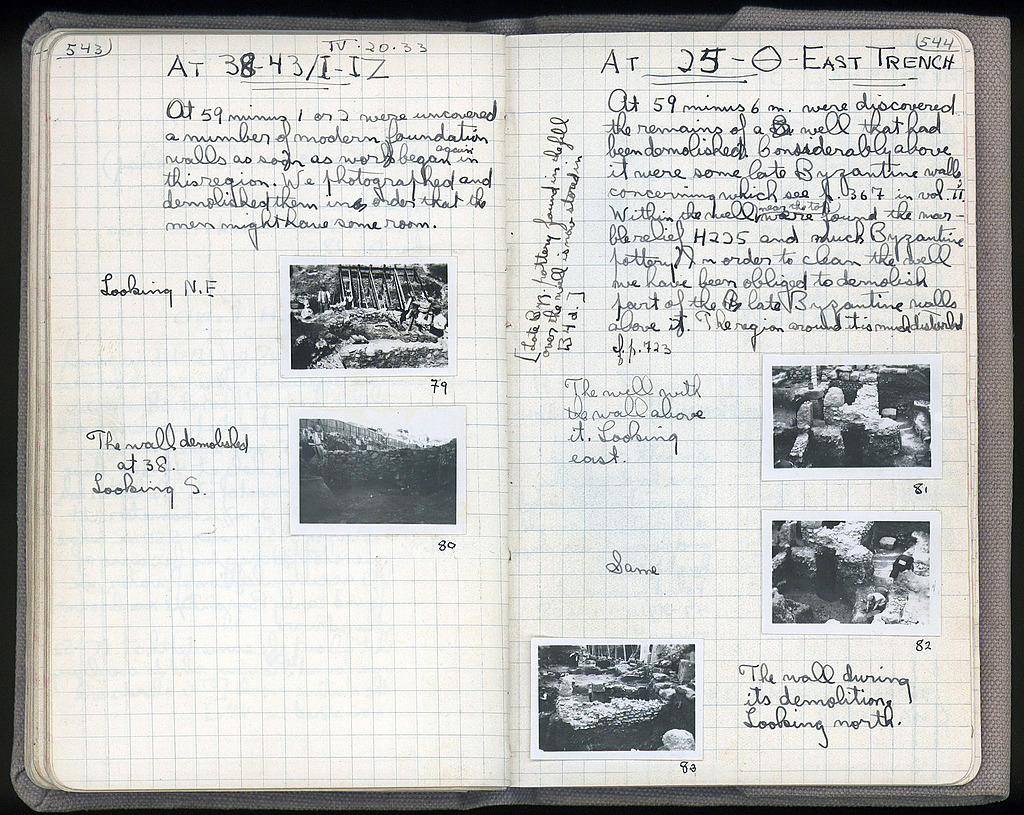 543
IV-20-33
AT 38-43/I-IZ
At 59 minus 1 or 2 were uncovered
a number of modern foundation
walls as soon as work began again in
this region. We photographed and
demolished them in order that the
men might have some room.
Looking N.E
79
The wall demolished
at 38.
Looking S.
80
544
AT 25-Θ-EAST TRENCH
At 59 minus 6 m. were discovered
the remains of a well that had
been demolished. Considerably above
it were some late Byzantine walls,
concerning which see p. 367 in vol. II.
Within the well (near the top) were found the mar-
ble relief H225 and much Byzantine
pottery. In order to clean the well
we have been obliged to demolish
part of the late Byzantine walls
above it. The region around it is much disturbed
cf. p. 723
[Late Byz. pottery found in the fill
over the well is now stored in
B4d.]
The well with
the wall above
it. Looking
east.
81
Same
82
83
The wall during
its demolition.
Looking north.